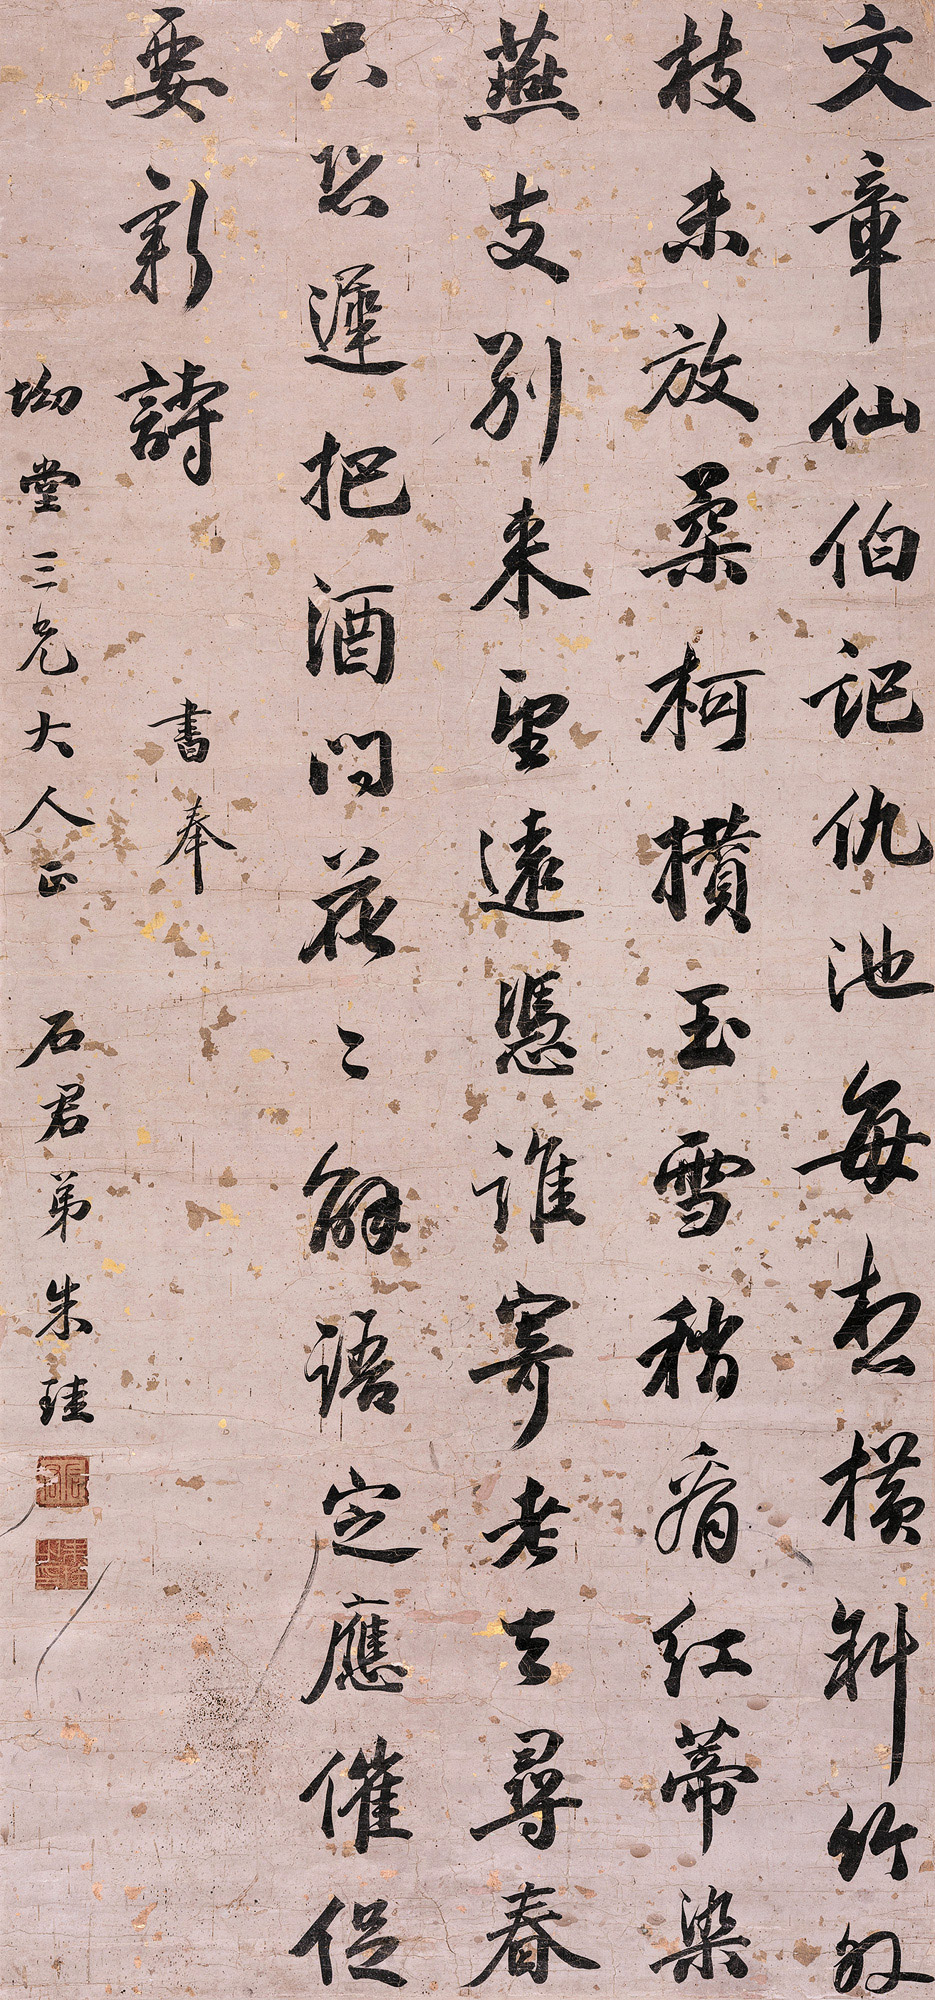 文章仙伯記仇池每想橫斜竹外
枝未放柔柯攢玉雪稍看紅蒂染
燕支別來望遠憑誰寄老去尋春
只恐遲把酒問花〻解語定應催促
要新詩 書奉
坳堂三兄大人正 石君弟朱珪